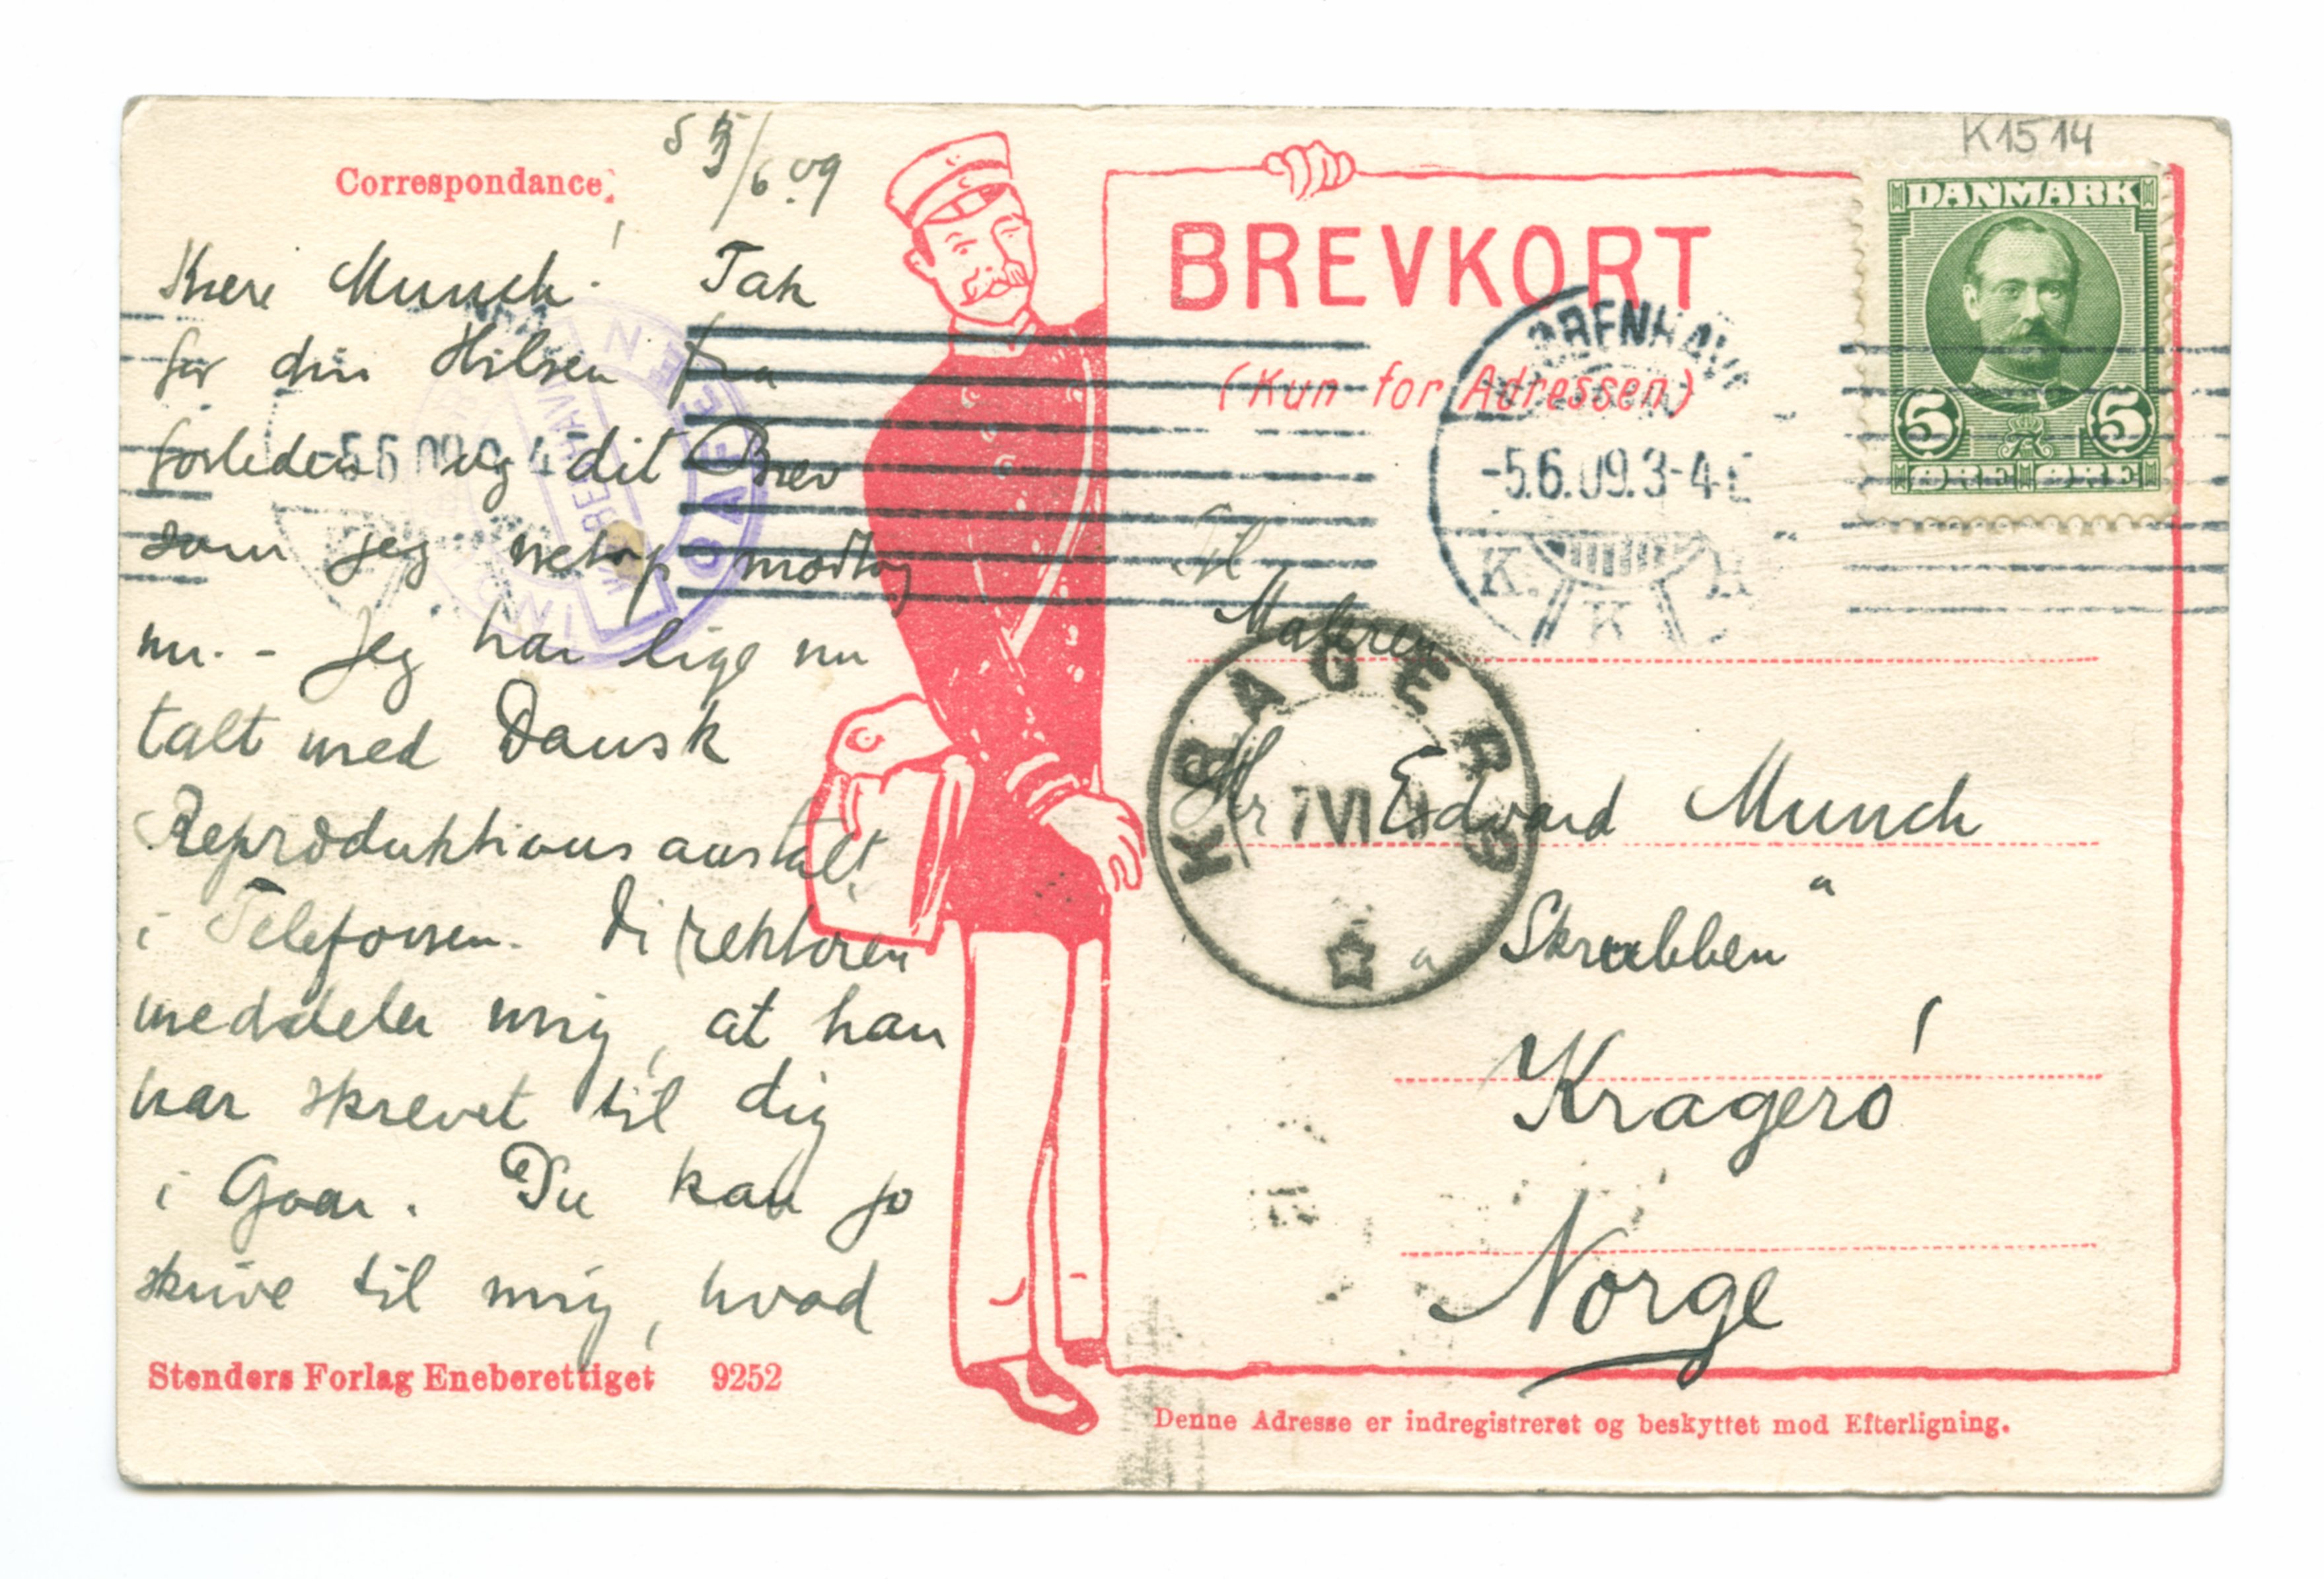 K1514
Correspondance.
5/6 09
Kære Munch! Tak
for din Hilsen fra
forleden og dit Brev
som jeg netop modtog
nu. - Jeg har lige nu
talt med Dansk
Reproduktionsanstalt
i Telefonen. Direktøren
meddeler mig, at han
har skrevet til dig
i Gaar. Du kan jo
skrive til mig, hvad
Stenders Forlag Eneberettiget 9252
BREVKORT
(Kun for Adressen)
DANMARK
5 5
ØRE ØRE
KØBENHAVN
-5.6.09.3-4
K. K
INDCAFEEN
KRAGERØ
7 VI
Til
Maleren
Hr Edvard Munch
"Skrubben"
Kragerø
Norge
Denne Adresse er indregistreret og beskyttet mod Efterligning.